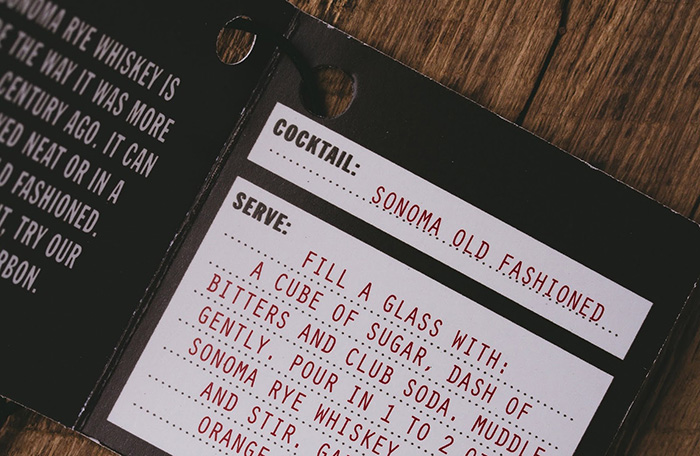 SONOMA RYE WHISKEY IS
THE WAY IT WAS MORE
CENTURY AGO. IT CAN
NEAT OR IN A
FASHIONED.
TRY OUR
COCKTAIL:
SONOMA OLD FASHIONED
SERVE:
FILL A GLASS WITH:
A CUBE OF SUGAR, DASH OF
BITTERS AND CLUB SODA. MUDDLE
GENTLY. POUR IN 1 TO 2
SONOMA RYE WHISKEY
AND STIR.
ORANGE